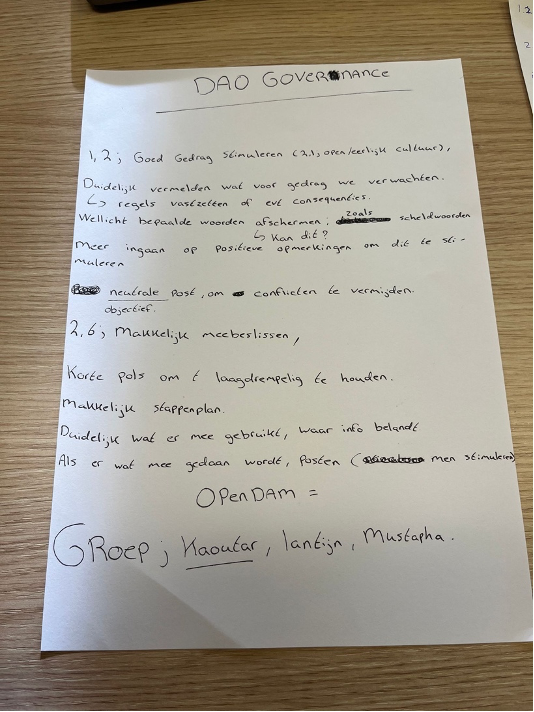 DAO GOVERNANCE
1,2; Goed Gedrag stimuleren (2,1; open/eerlijk cultuur),
Duidelijk vermelden wat voor gedrag we verwachten.
↳ regels vastzetten of evt consequenties.
Wellicht bepaalde woorden afschermen; zoals scheldwoorden
↳ Kan dit?
Meer ingaan op positieve opmerkingen om dit te sti-
muleren
neutrale post, om conflicten te vermijden.
objectief.
2,6; Makkelijk meebeslissen,
Korte pols om t laagdrempelig te houden.
Makkelijk stappenplan.
Duidelijk wat er mee gebruikt, waar info belandt
Als er wat mee gedaan wordt, posten ( men stimuleren)
OPenDAM =
GRoep; Kaoutar, Iantijn, Mustapha.
1.2
2